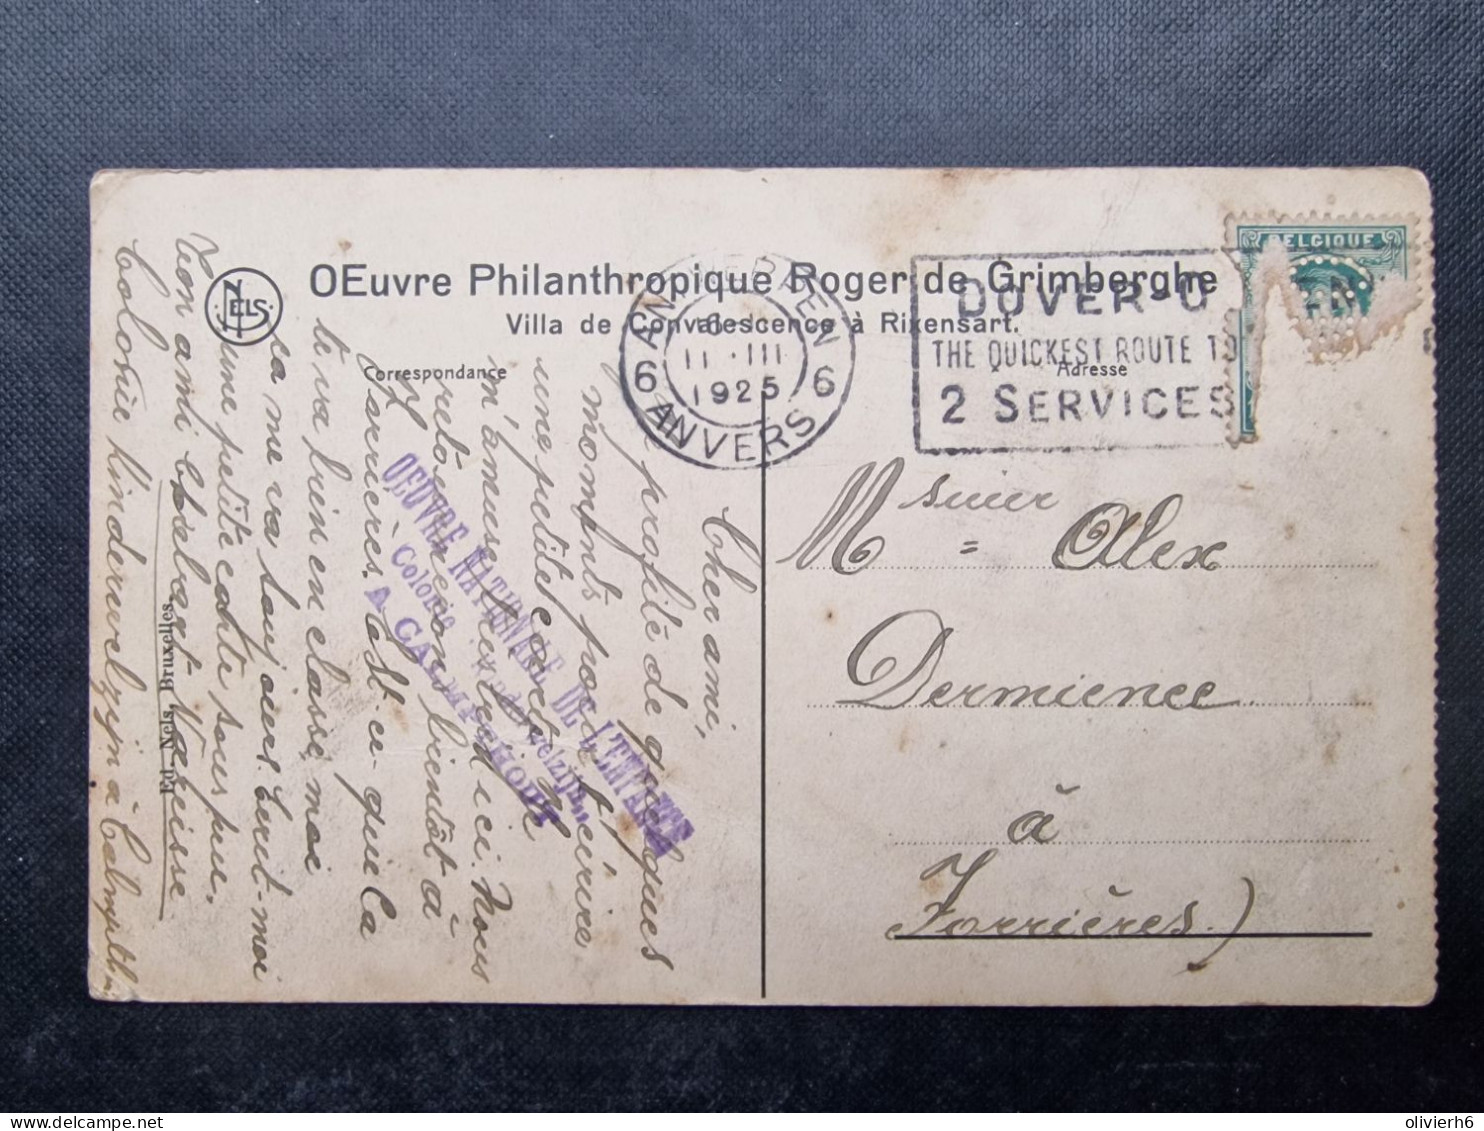 OEuvre Philanthropique Roger de Grimberghe
Villa de Convalescence à Rixensart.
Correspondance
Adresse
NELS
Ed. Nels, Bruxelles.
BELGIQUE
ANTWERPEN
6 6
11 III
1925
ANVERS
DOVER-O
THE QUICKEST ROUTE TO
2 SERVICES
OEUVRE NATIONALE DE L'ENFANCE
Colonie
A CALMPTHOUT
Cher ami,
J'ai profité de quelques
moments pour t'écrire
une petite carte. Je
m'amuse bien ici. Nous
bientôt à
Jarrières. Est-ce que ça
te va bien en classe, moi
ça me va toujours. Écrit-moi
une petite carte sous peu.
Ton ami
Colonie Kinderwelzijn à Calmpth
Msieur Alex
Dermience
à
Forrières.)
olivierh6